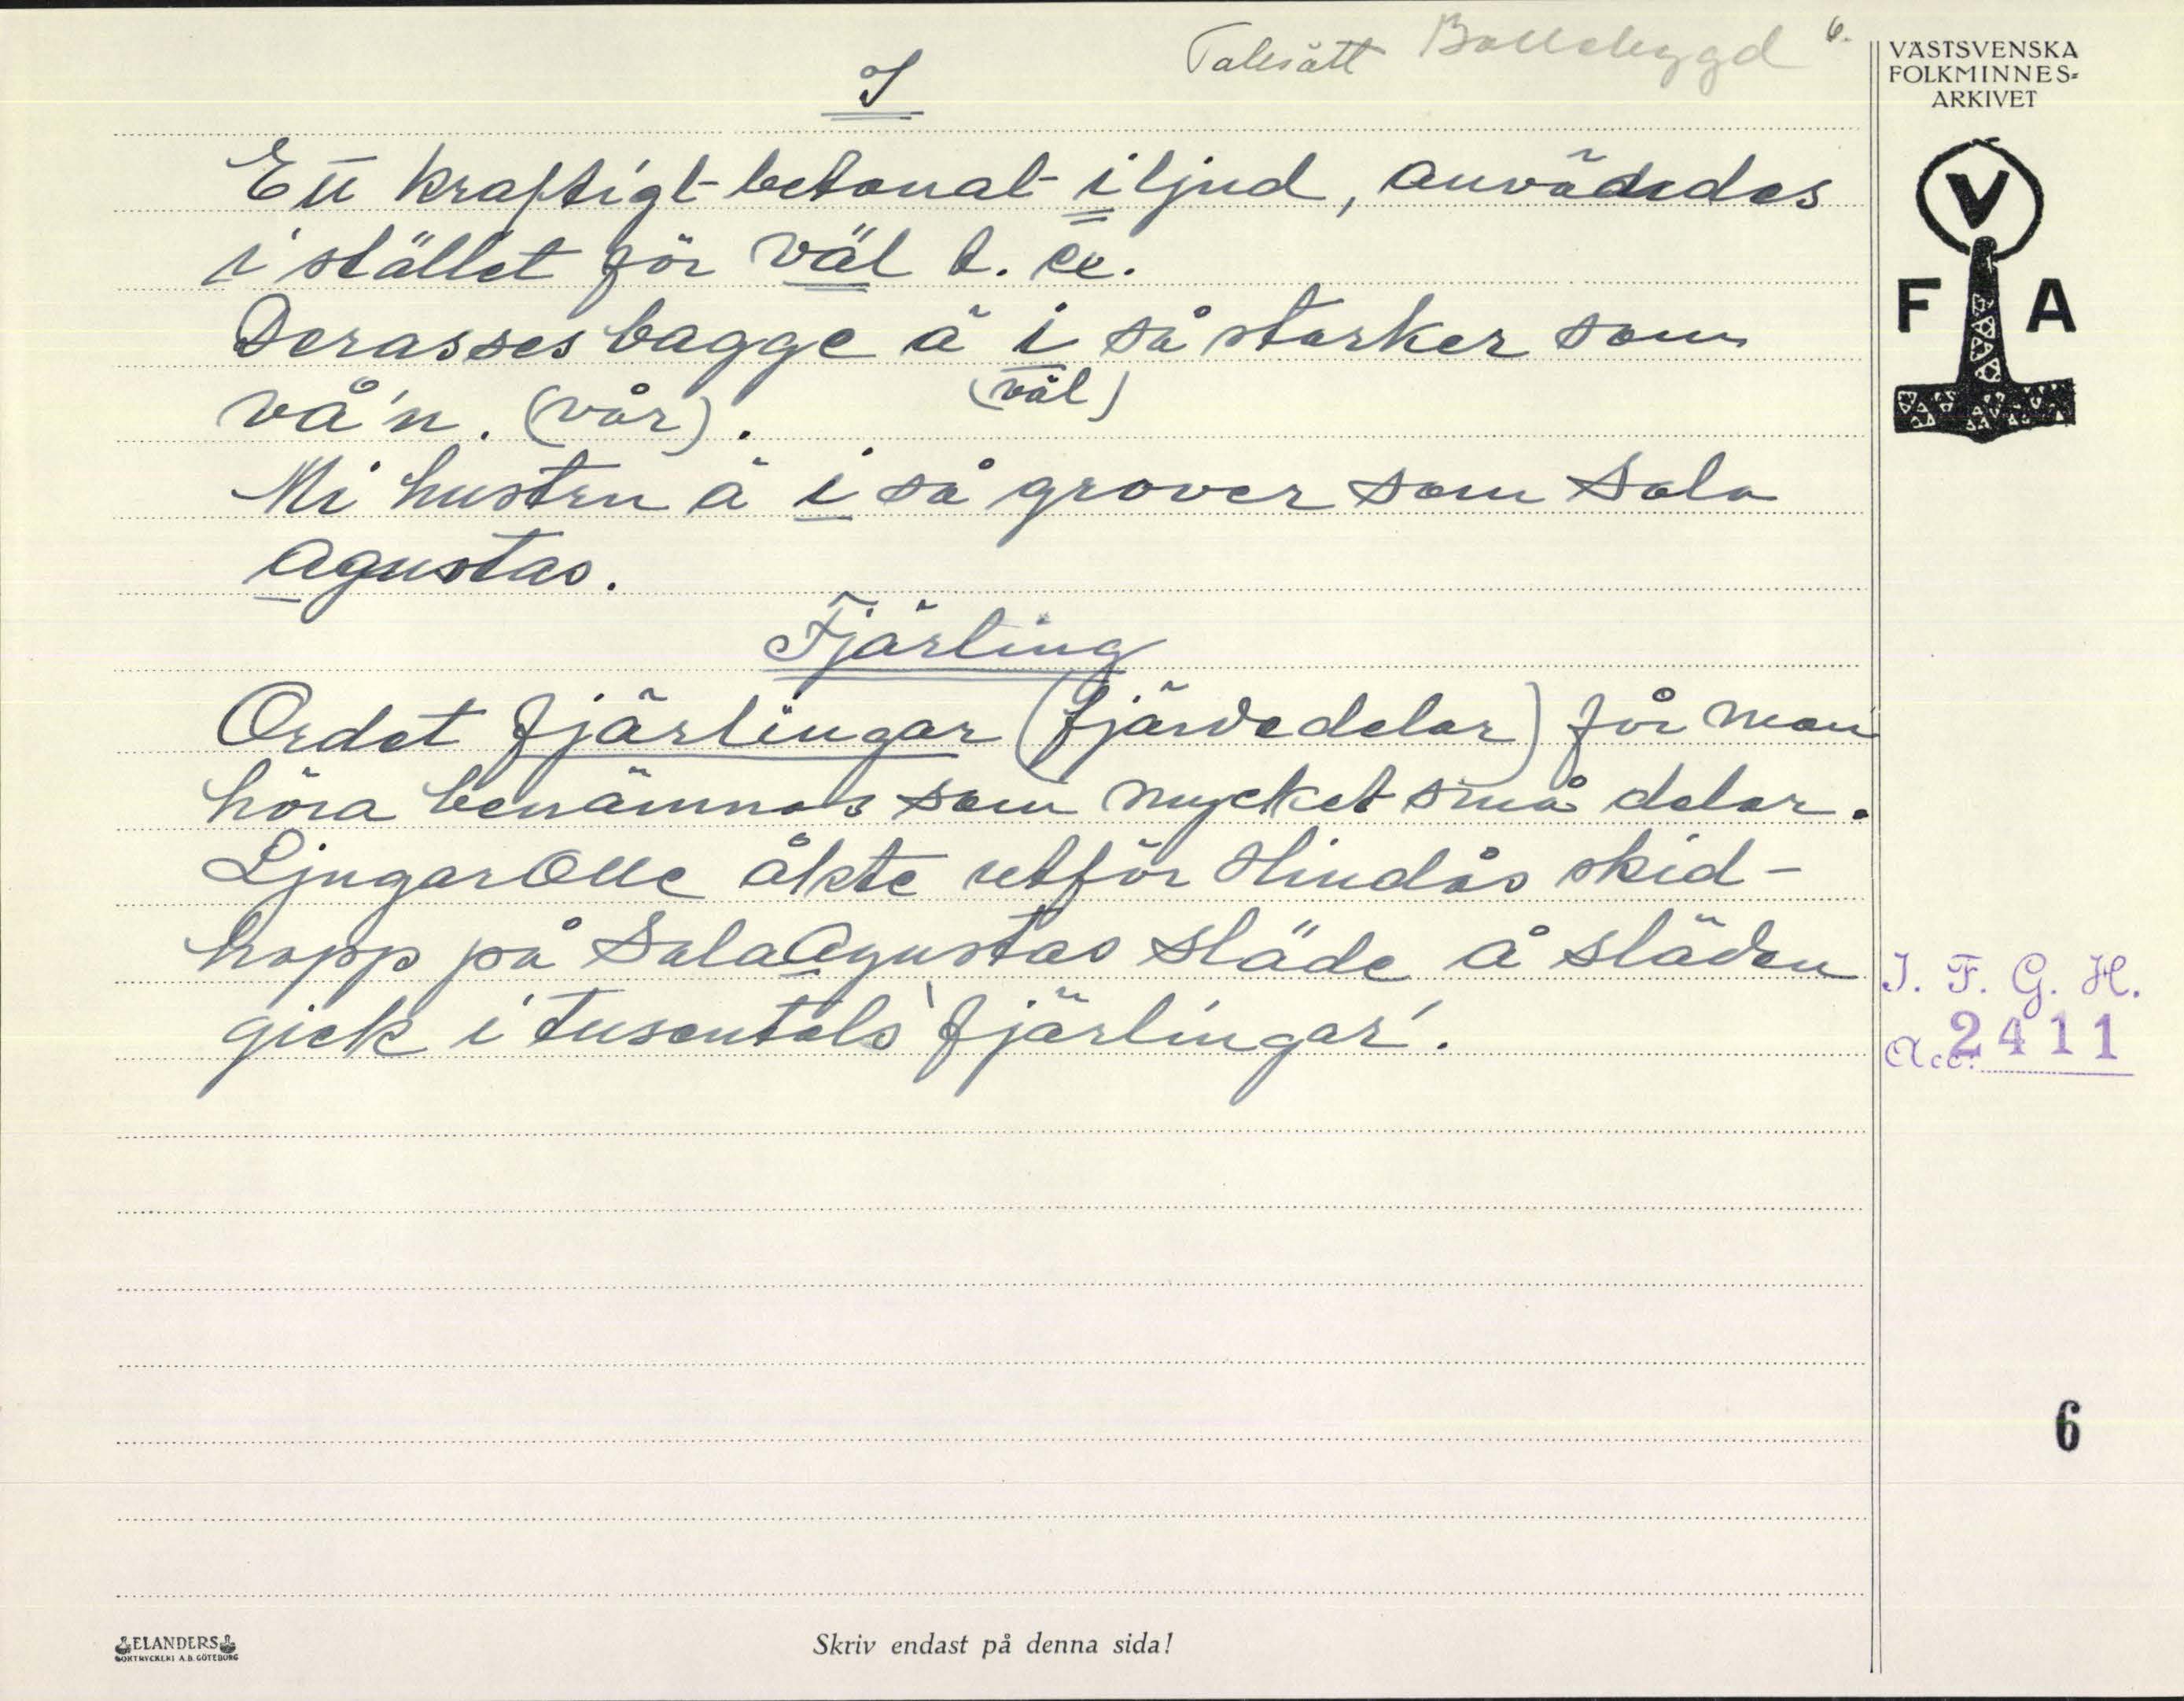 Talesätt Bollebygd 6.
I
Ett kraftigt betonat i ljud, användes
i stället för väl t. ex.
Derasses bagge ä i så starker som
(väl)
vå'n. (vår).
Mi hustru ä i så grover som Sala
Agustas.
Fjärling
Ordet fjärlingar (fjärdedelar) får man
höra benämnas som mycket små delar.
Ljugarolle åkte utför Hindås skid-
hopp på Sala Agustas släde å släden
gick i tusentals 'fjärlingar'.
VÄSTSVENSKA
FOLKMINNES-
ARKIVET
V
F A
I. F. G. H.
Acc. 2411
6
ELANDERS
BOKTRYCKERI A.B. GÖTEBORG
Skriv endast på denna sida!